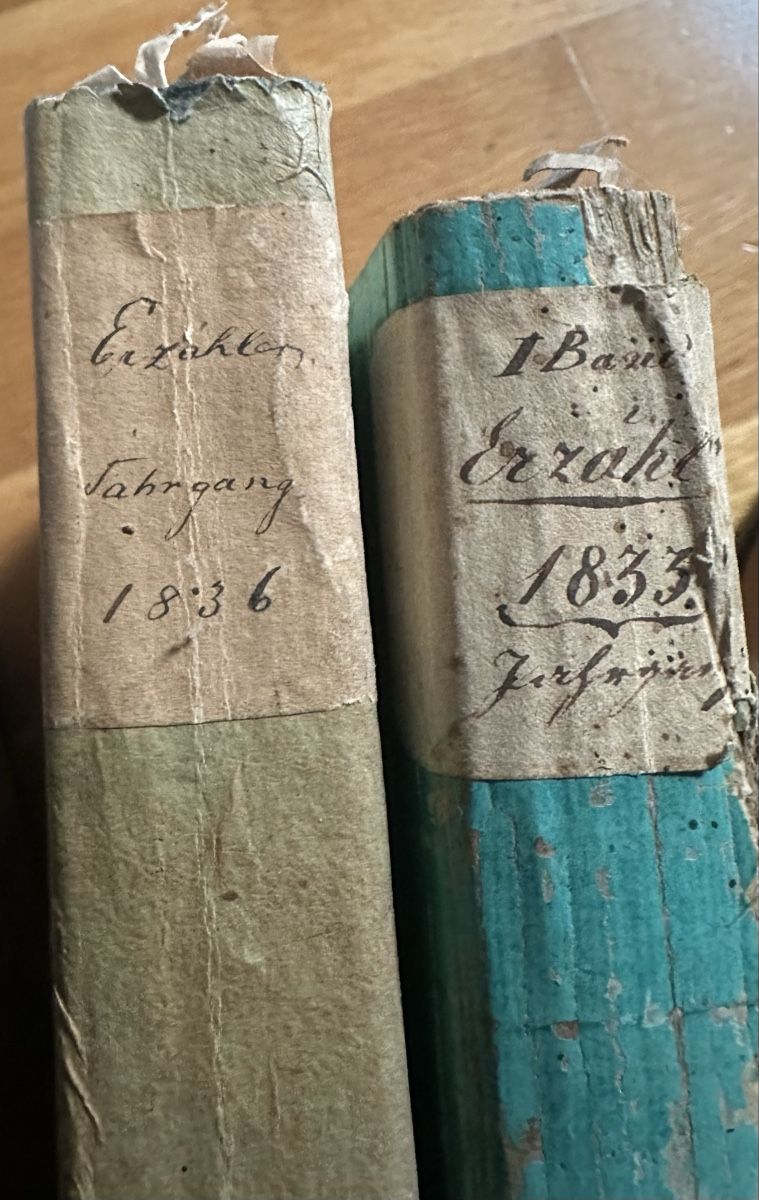 Erzähler
Jahrgang
1836
I Band
Erzähl
1833
Jahrgang